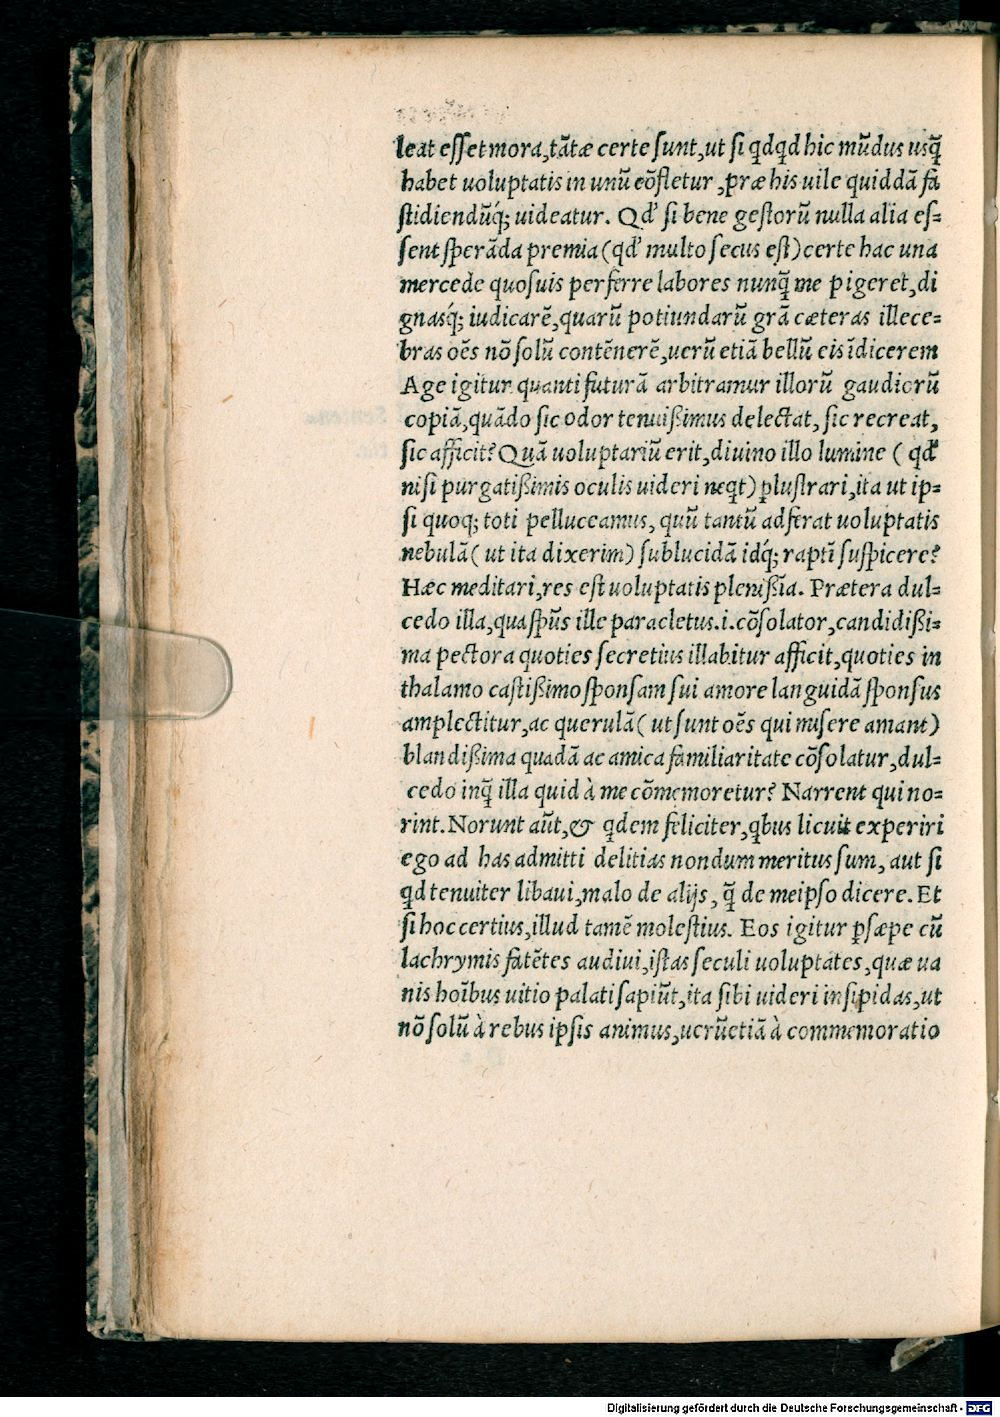 leat esset mora,tãtæ certe sunt,ut si qdqd hic mũdus usq̃
habet uoluptatis in unũ cõfletur ,præ his uile quiddã fa
stidiendũq́; uideatur. Qd' si bene gestorũ nulla alia es=
sent sperãda premia(qd' multo secus est)certe hac una
mercede quosuis perferre labores nunq̃ me pigeret,di
gnasq́; iudicarẽ,quarũ potiundarũ grã cæteras illece=
bras oẽs nõ solũ contẽnerẽ,uerũ etiã bellũ eis ĩdicerem
Age igitur quanti futurã arbitramur illorũ gaudiorũ
copiã,quãdo sic odor tenuißimus delectat, sic recreat,
sic afficit? Quã uoluptariũ erit,diuino illo lumine ( qd'
nisi purgatißimis oculis uideri neq̃t) ꝑlustrari,ita ut ip=
si quoq; toti pelluceamus, quũ tantũ adferat uoluptatis
nebulã( ut ita dixerim) sublucidã idq́; raptĩ suspicere?
Hæc meditari,res est uoluptatis plenißĩa. Prætera dul=
cedo illa,qua spũs ille paracletus.i.cõsolator,candidißi=
ma pectora quoties secretius illabitur afficit,quoties in
thalamo castißimo sponsam sui amore languidã sponsus
amplectitur,ac querulã( ut sunt oẽs qui misere amant)
blandißima quadã ac amica familiaritate cõsolatur,dul=
cedo inq̃ illa quid à me cõmemoretur? Narrent qui no=
rint. Norunt aũt,& q̃dem feliciter,qbus licuit experiri
ego ad has admitti delitias nondum meritus sum, aut si
qd tenuiter libaui,malo de alijs, q̃ de meipso dicere. Et
si hoc certius,illud tamẽ molestius. Eos igitur ꝑsæpe cũ
lachrymis fatẽtes audiui,istas seculi uoluptates,quæ ua
nis hoĩbus uitio palati sapiũt,ita sibi uideri insipidas,ut
nõ solũ à rebus ipsis animus,uerũetiã à commemoratio
Digitalisierung gefördert durch die Deutsche Forschungsgemeinschaft - DFG